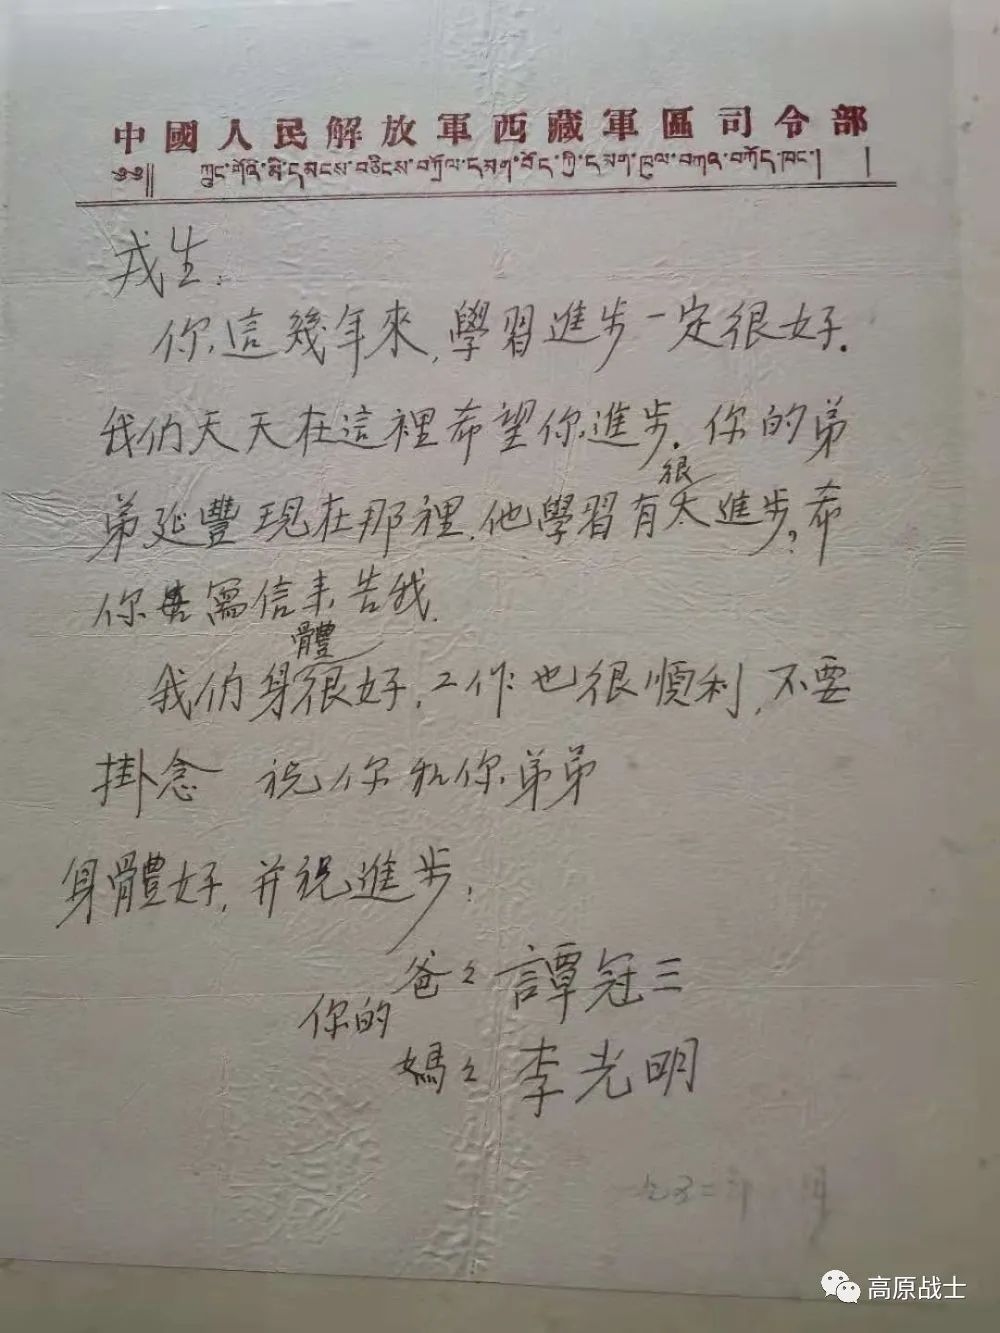 中國人民解放軍西藏軍區司令部
༄༅།། ཀྲུང་གོའི་མི་དམངས་བཅིངས་བཀྲོལ་དམག་བོད་ཀྱི་དམག་ཁུལ་བཀའ་བཀོད་ཁང་། །
戎生：
你這幾年來，學習進步一定很好．
我们天天在這裡希望你進步．你的弟
弟延豐現在那裡．他學習有很大進步？希
你寫信来告我．
我们身體很好，工作也很順利，不要
掛念 祝你和你弟弟
身體好，并祝進步．
你的
爸々 譚冠三
媽々 李光明
高原战士